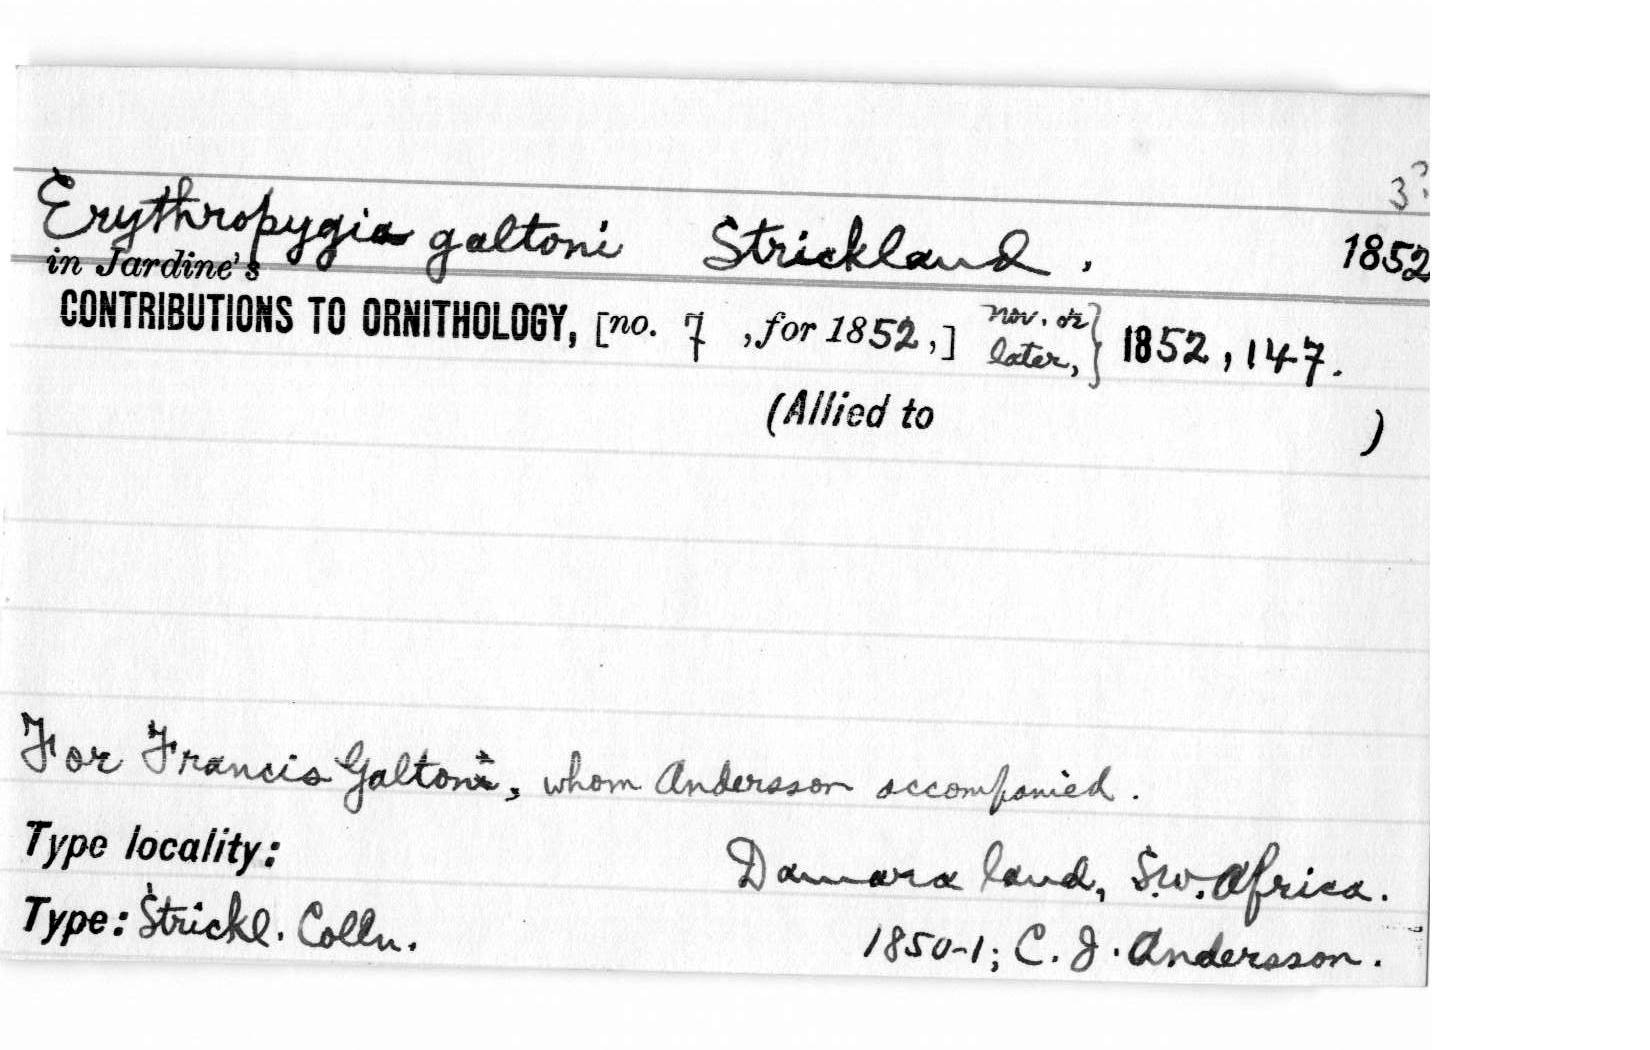 3?
Erythropygia galtoni Strickland. 1852
in Jardine's
CONTRIBUTIONS TO ORNITHOLOGY, [no. 7 ,for 1852,] nov. or later,} 1852, 147.
(Allied to )
For Francis Galtoni, whom Andersson accompanied.
Type locality: Damara land, S.W. Africa.
Type: Strickl. Colln. 1850-1; C. J. Andersson.